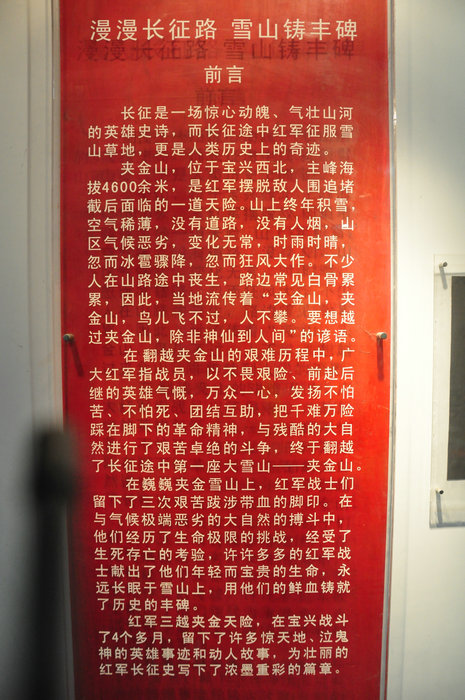 漫漫长征路 雪山铸丰碑
前言
长征是一场惊心动魄、气壮山河
的英雄史诗，而长征途中红军征服雪
山草地，更是人类历史上的奇迹。
夹金山，位于宝兴西北，主峰海
拔4600余米，是红军摆脱敌人围追堵
截后面临的一道天险。山上终年积雪，
空气稀薄，没有道路，没有人烟，山
区气候恶劣，变化无常，时雨时晴，
忽而冰雹骤降，忽而狂风大作。不少
人在山路途中丧生，路边常见白骨累
累，因此，当地流传着“夹金山，夹
金山，鸟儿飞不过，人不攀。要想越
过夹金山，除非神仙到人间”的谚语。
在翻越夹金山的艰难历程中，广
大红军指战员，以不畏艰险、前赴后
继的英雄气慨，万众一心，发扬不怕
苦、不怕死、团结互助，把千难万险
踩在脚下的革命精神，与残酷的大自
然进行了艰苦卓绝的斗争，终于翻越
了长征途中第一座大雪山——夹金山。
在巍巍夹金雪山上，红军战士们
留下了三次艰苦跋涉带血的脚印。在
与气候极端恶劣的大自然的搏斗中，
他们经历了生命极限的挑战，经受了
生死存亡的考验，许许多多的红军战
士献出了他们年轻而宝贵的生命，永
远长眠于雪山上，用他们的鲜血铸就
了历史的丰碑。
红军三越夹金天险，在宝兴战斗
了4个多月，留下了许多惊天地、泣鬼
神的英雄事迹和动人故事，为壮丽的
红军长征史写下了浓墨重彩的篇章。